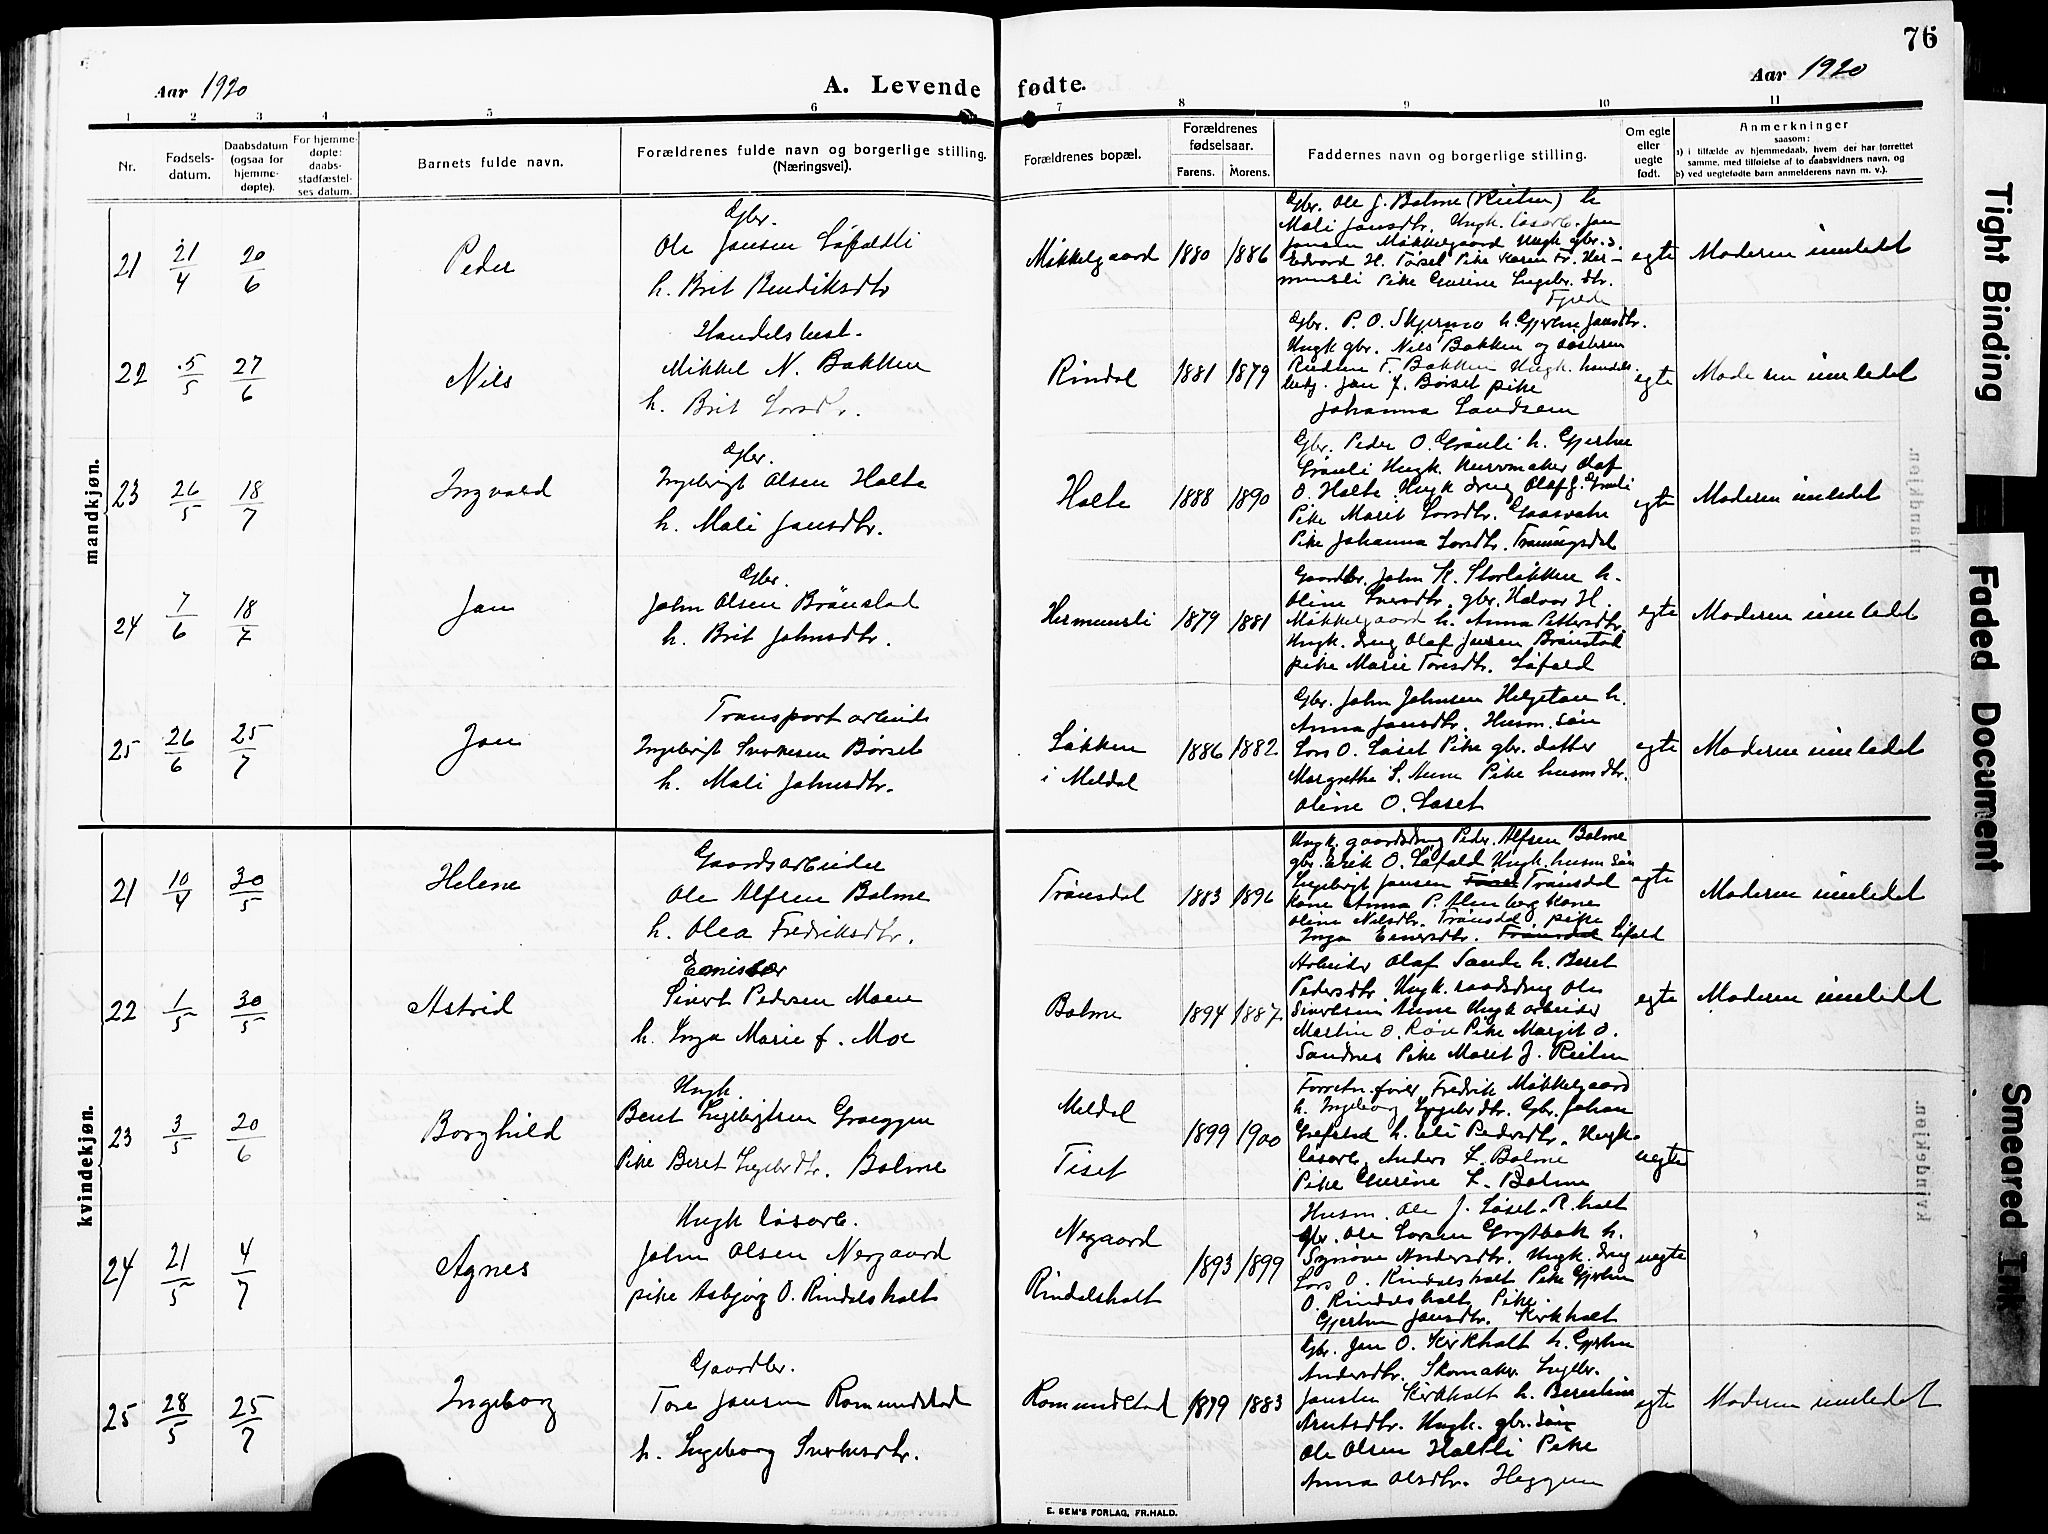 76
Aar 1920
A. Levende fødte.
Aar 1920
1 2 3 4 5 6 7 8 9 10 11
Nr.
Fødsels-
datum.
Daabsdatum
(ogsaa for
hjemme-
døpte).
For hjemme-
døpte:
daabs-
stadfæstel-
ses datum.
Barnets fulde navn.
Forældrenes fulde navn og borgerlige stilling.
(Næringsvei).
Forældrenes bopæl.
Forældrenes
fødselsaar.
Farens. Morens.
Faddernes navn og borgerlige stilling.
Om egte
eller
uegte
født.
Anmerkninger
saasom:
a) i tilfælde av hjemmedaab, hvem der har forrettet
samme, med tilføielse af to daabsvidners navn, og
b) ved uegtefødte barn anmelderens navn m. v.).
mandkjøn.
21 21/4 20/6 Peder
Gbr.
Ole Jansen Løfaldli
h. Brit Bendiksdtr
Mikkelgaard 1880 1886
Gbr. Ole J. Bolme h
Mali Jansdtr. Ungk. løsarb. Jan
Jansen Mikkelgaard Ungk gbr.s.
Edvard H. Tørset Pike Karen Fr. Her-
munsli Pike Gurine Ingebr. dtr.
Fjelde
egte Moderen innledet
22 5/5 27/6 Nils
Handelsbest.
Mikkel N. Bakken
h. Brit Larsdtr.
Rindal 1881 1879
Gbr. P. O. Skjermo h. Gjertin Jansdtr.
Ungk gbr. Nils Bakken og søsteren
F. Bakken Ungk. handels
betj. Jan F. Børset pike
Johanna Landsem
egte Moderen innledet
23 26/5 18/7 Ingvald
Gbr.
Ingebrigt Olsen Holte
h. Mali Jansdtr.
Holte 1888 1890
Gbr. Peder O. Grønli h. Gjertin
Grønli Ungk. Olaf
O. Holte. Ungk dreng Olaf J. Grønli
Pike Marit Larsdtr. Gaasvatn
Pike Johanna Larsdtr.
egte Moderen innledet
24 7/6 18/7 Jan
Gbr.
John Olsen Brønstad
h. Brit Johnsdtr.
Hermunsli 1879 1881
Gaardbr. John K. Storløkken h.
Oline Siversdtr. gbr. Halvor H.
Mikkelgaard h. Anna Pettersdtr.
Ungk. dreng Olaf Jensen Brønstad
pike Marie Toresdtr. Løfald
egte Moderen innledet
25 26/6 25/7 Jan
Transportarbeider
Ingebrigt Sivertsen Børset
h. Mali Johnsdtr.
Løkken
i Meldal
1886 1882
Gbr. John Johnsen Helgetun h.
Anna Jansdtr. Husm. søn
Lars O. Løset Pike gbr. datter
Margrethe S. Aune Pike husm dtr.
Oline O. Løset
egte Moderen innledet
kvindekjøn.
21 10/4 30/5 Helene
Gaardsarbeider
Ole Alfsen Bolme
h. Olea Fredriksdtr.
Trønsdal 1883 1896
Ungk. gaardsdreng Peder Alfsen Bolme
gbr. Erik O. Løfald Ungk. husm søn
Ingebrigt Jansen Trønsdal
Kone Anna P. Almberg Kone
Oline Nilsdtr. Trønsdal pike
Inga Einersdtr. Trønsdal Løfald
egte Moderen innledet
22 1/5 30/5 Astrid
Emissær
Sivert Pedersen Moen
h. Inga Marie f. Moe
Bolme 1894 1887
Arbeider Olaf Sande h. Beret
Pedersdtr. Ungk. gaardsdreng Ole
Sivertsen Aune Ungk arbeider
Martin O. Røe Pike Margit O.
Sandnes Pike Marit J.
egte Moderen innledet
23 3/5 20/6 Borghild
Ungk.
Bernt Ingebrigtsen Graeggen
Pike Beret Ingebrdtr. Bolme
Meldal
Tiset
1899 1900
Forretn.fører Fredrik Mikkelgaard
h. Ingeborg Ingebrdtr. Gbr. Johan
Grefstad h. Pedersdtr. Ungk.
løsarb. Anders I. Bolme
Pike Gurine I. Bolme
uegte
24 21/5 4/7 Agnes
Ungk løsarb.
John Olsen Nergaard
pike Asbjørg O. Rindalsholt
Negaard
Rindalsholt
1893 1899
Husm. Ole J. Løset R.holt
gbr. Ole Larsen Grytbak h.
Synnøve Andersdtr. Ungk. dreng
Lars O. Rindalsholt Pike Gjertin
O. Rindalsholt Pike
Gjertin Jansdtr. Kirkholt
uegte
25 28/5 25/7 Ingeborg
Gaardbr.
Tore Jansen Romundstad
h. Ingeborg Sivertsdtr.
Romundstad 1879 1883
Gbr. Jan O. Kirkholt h. Gjertin
Andersdtr. Skomaker Ingebr.
Jansen Kirkholt h. Berntine
Arntsdtr. Ungk. gbr. søn
Ole Olsen Haltli Pike
Anna Olsdtr. Heggem
egte Moderen innledet
E. SEM'S FORLAG, FR.HALD.
Tight Binding
Faded Document
Smeared Ink